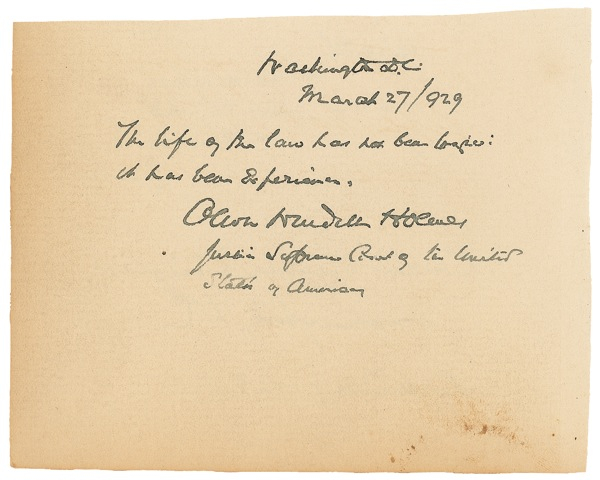 Washington D.C.
March 27/1929
The life of the law has not been logic:
it has been experience.
Oliver Wendell Holmes
Justice Supreme Court of the United
States of America